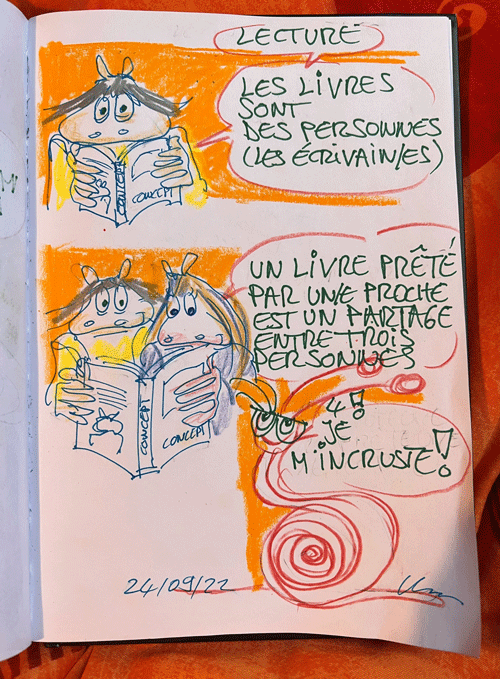 LECTURE
LES LIVRES
SONT
DES PERSONNES
(LES ÉCRIVAIN/ES)
CONCEPT
CONCEPT
UN LIVRE PRÊTÉ
PAR UN/E PROCHE
EST UN PARTAGE
ENTRE TROIS
PERSONNES
4!
JE
M'INCRUSTE!
CONCEPT
CONCEPT
24/09/22